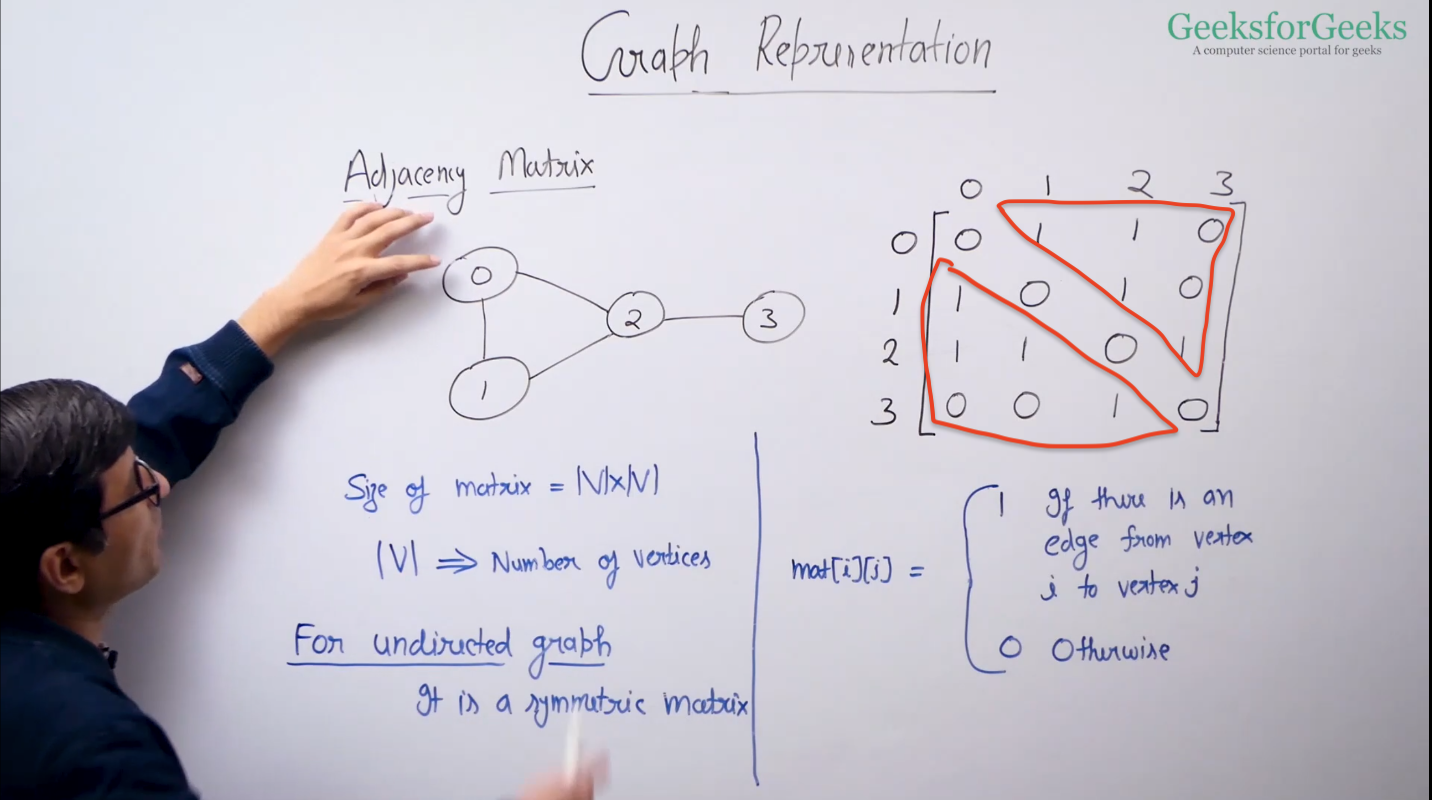 GeeksforGeeks
A computer science portal for geeks
Graph Representation
Adjacency Matrix
0
1
2
3
0 1 2 3
0 0 1 1 0
1 1 0 1 0
2 1 1 0 1
3 0 0 1 0
Size of matrix = |V|x|V|
|V| ⇒ Number of vertices
For undirected graph
It is a symmetric matrix
mat[i][j] =
1 If there is an
edge from vertex
i to vertex j
0 Otherwise